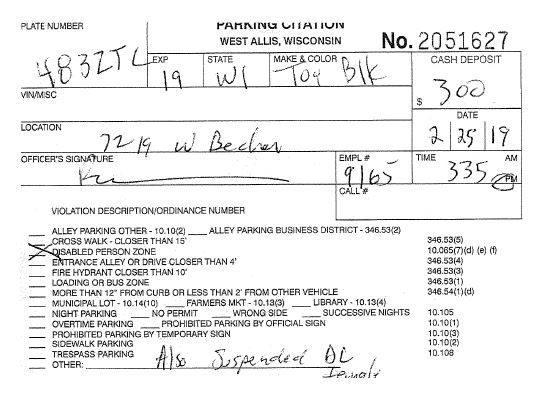 PARKING CITATION
PLATE NUMBER
WEST ALLIS, WISCONSIN
No. 2051627
483ZTL
EXP
19
STATE
WI
MAKE & COLOR
Toy Blk
CASH DEPOSIT
$ 300
VIN/MISC
DATE
2 25 19
LOCATION
7219 W Becher
OFFICER'S SIGNATURE
EMPL #
9165
TIME
335
AM
PM
CALL #
VIOLATION DESCRIPTION/ORDINANCE NUMBER
ALLEY PARKING OTHER - 10.10(2) ____ ALLEY PARKING BUSINESS DISTRICT - 346.53(2)
CROSS WALK - CLOSER THAN 15' 346.53(5)
DISABLED PERSON ZONE 10.065(7)(d) (e) (f)
ENTRANCE ALLEY OR DRIVE CLOSER THAN 4' 346.53(4)
FIRE HYDRANT CLOSER THAN 10' 346.53(3)
LOADING OR BUS ZONE 346.53(1)
MORE THAN 12" FROM CURB OR LESS THAN 2' FROM OTHER VEHICLE 346.54(1)(d)
MUNICIPAL LOT - 10.14(10) ____ FARMERS MKT - 10.13(3) ____ LIBRARY - 10.13(4)
NIGHT PARKING ____ NO PERMIT ____ WRONG SIDE ____ SUCCESSIVE NIGHTS 10.105
OVERTIME PARKING ____ PROHIBITED PARKING BY OFFICIAL SIGN 10.10(1)
PROHIBITED PARKING BY TEMPORARY SIGN 10.10(3)
SIDEWALK PARKING 10.10(2)
TRESPASS PARKING 10.108
OTHER: Also Suspended DL
female